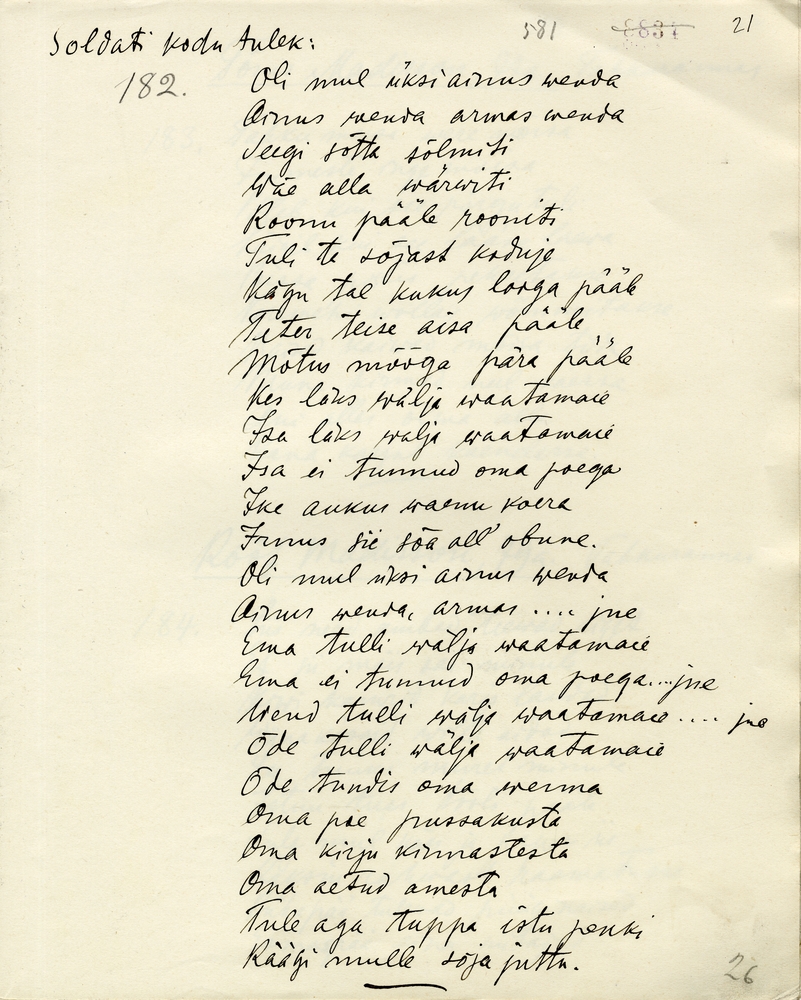 581 8831 21
Soldati kodu tulek:
182.
Oli mul üksi ainus wenda
Ainus wenda armas wenda
Seegi sõtta sõlmiti
Wäe alla wärwiti
Roonu pääle rooniti
Tuli ta sõjast koduje
Kägu tal kukus looga pääle
Teter teise aisa pääle
Mõtus mõõga pära pääle
Kes läks wälja waatamaie
Isa läks walja waatamaie
Isa ei tunnud oma poega
Ike aukus waenu koera
Irnus sie sõa all' obune.
Oli mul üksi ainus wenda
Ainus wenda, armas .... jne
Ema tulli wälja waatamaie
Ema ei tunnud oma poega....jne
Wend tulli wälja waatamaie .... jne
Õde tulli wälja waatamaie
Õde tundis oma wenna
Oma poe pussakusta
Oma kirju kinnastesta
Oma aetud amesta
Tule aga tuppa istu penki
Räägi mulle sõja juttu.
26